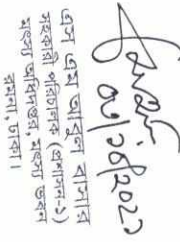 ০৬/১৬/২০২১
এস এম আবুল বাসার
সহকারী পরিচালক (প্রশাসন-১)
মৎস্য অধিদপ্তর মৎস্য ভবন
রমনা, ঢাকা।